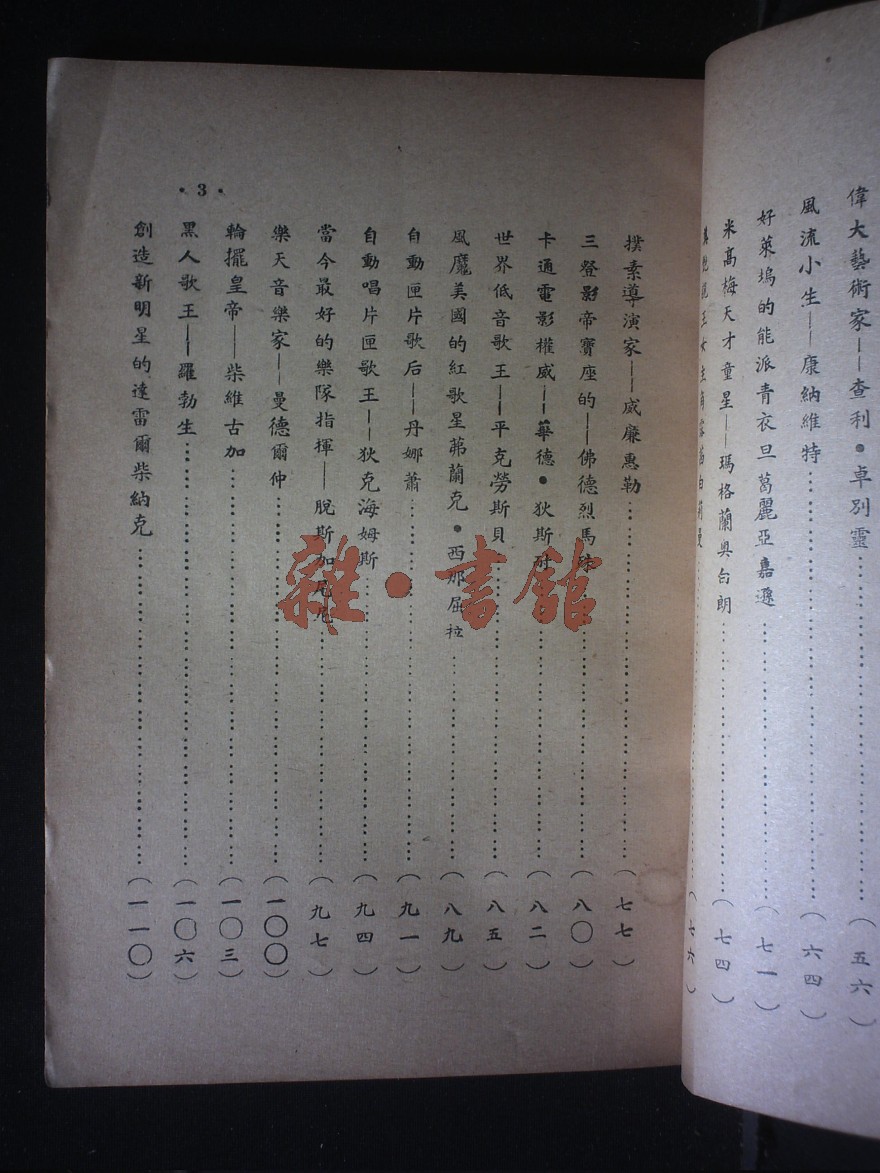 偉大藝術家——查利•卓別靈……(五六)
風流小生——康納維特……(六四)
好萊塢的能派青衣旦葛麗亞嘉遜……(七一)
米高梅天才童星——瑪格蘭奧台朗……(七四)
……(七六)
樸素導演家——威廉惠勒……(七七)
三登影帝寶座的——佛德烈馬……(八〇)
卡通電影權威——華德•狄斯耐……(八二)
世界低音歌王——平克勞斯貝……(八五)
風魔美國的紅歌星茀蘭克•西那屈拉……(八九)
自動匣片歌后——丹娜蕭……(九一)
自動唱片匣歌王——狄克海姆斯……(九四)
當今最好的樂隊指揮——脫斯加尼尼……(九七)
樂天音樂家——曼德爾仲……(一〇〇)
輪擺皇帝——柴維古加……(一〇三)
黑人歌王——羅勃生……(一〇六)
創造新明星的達雷爾柴納克……(一一〇)
•3•
雜•書館